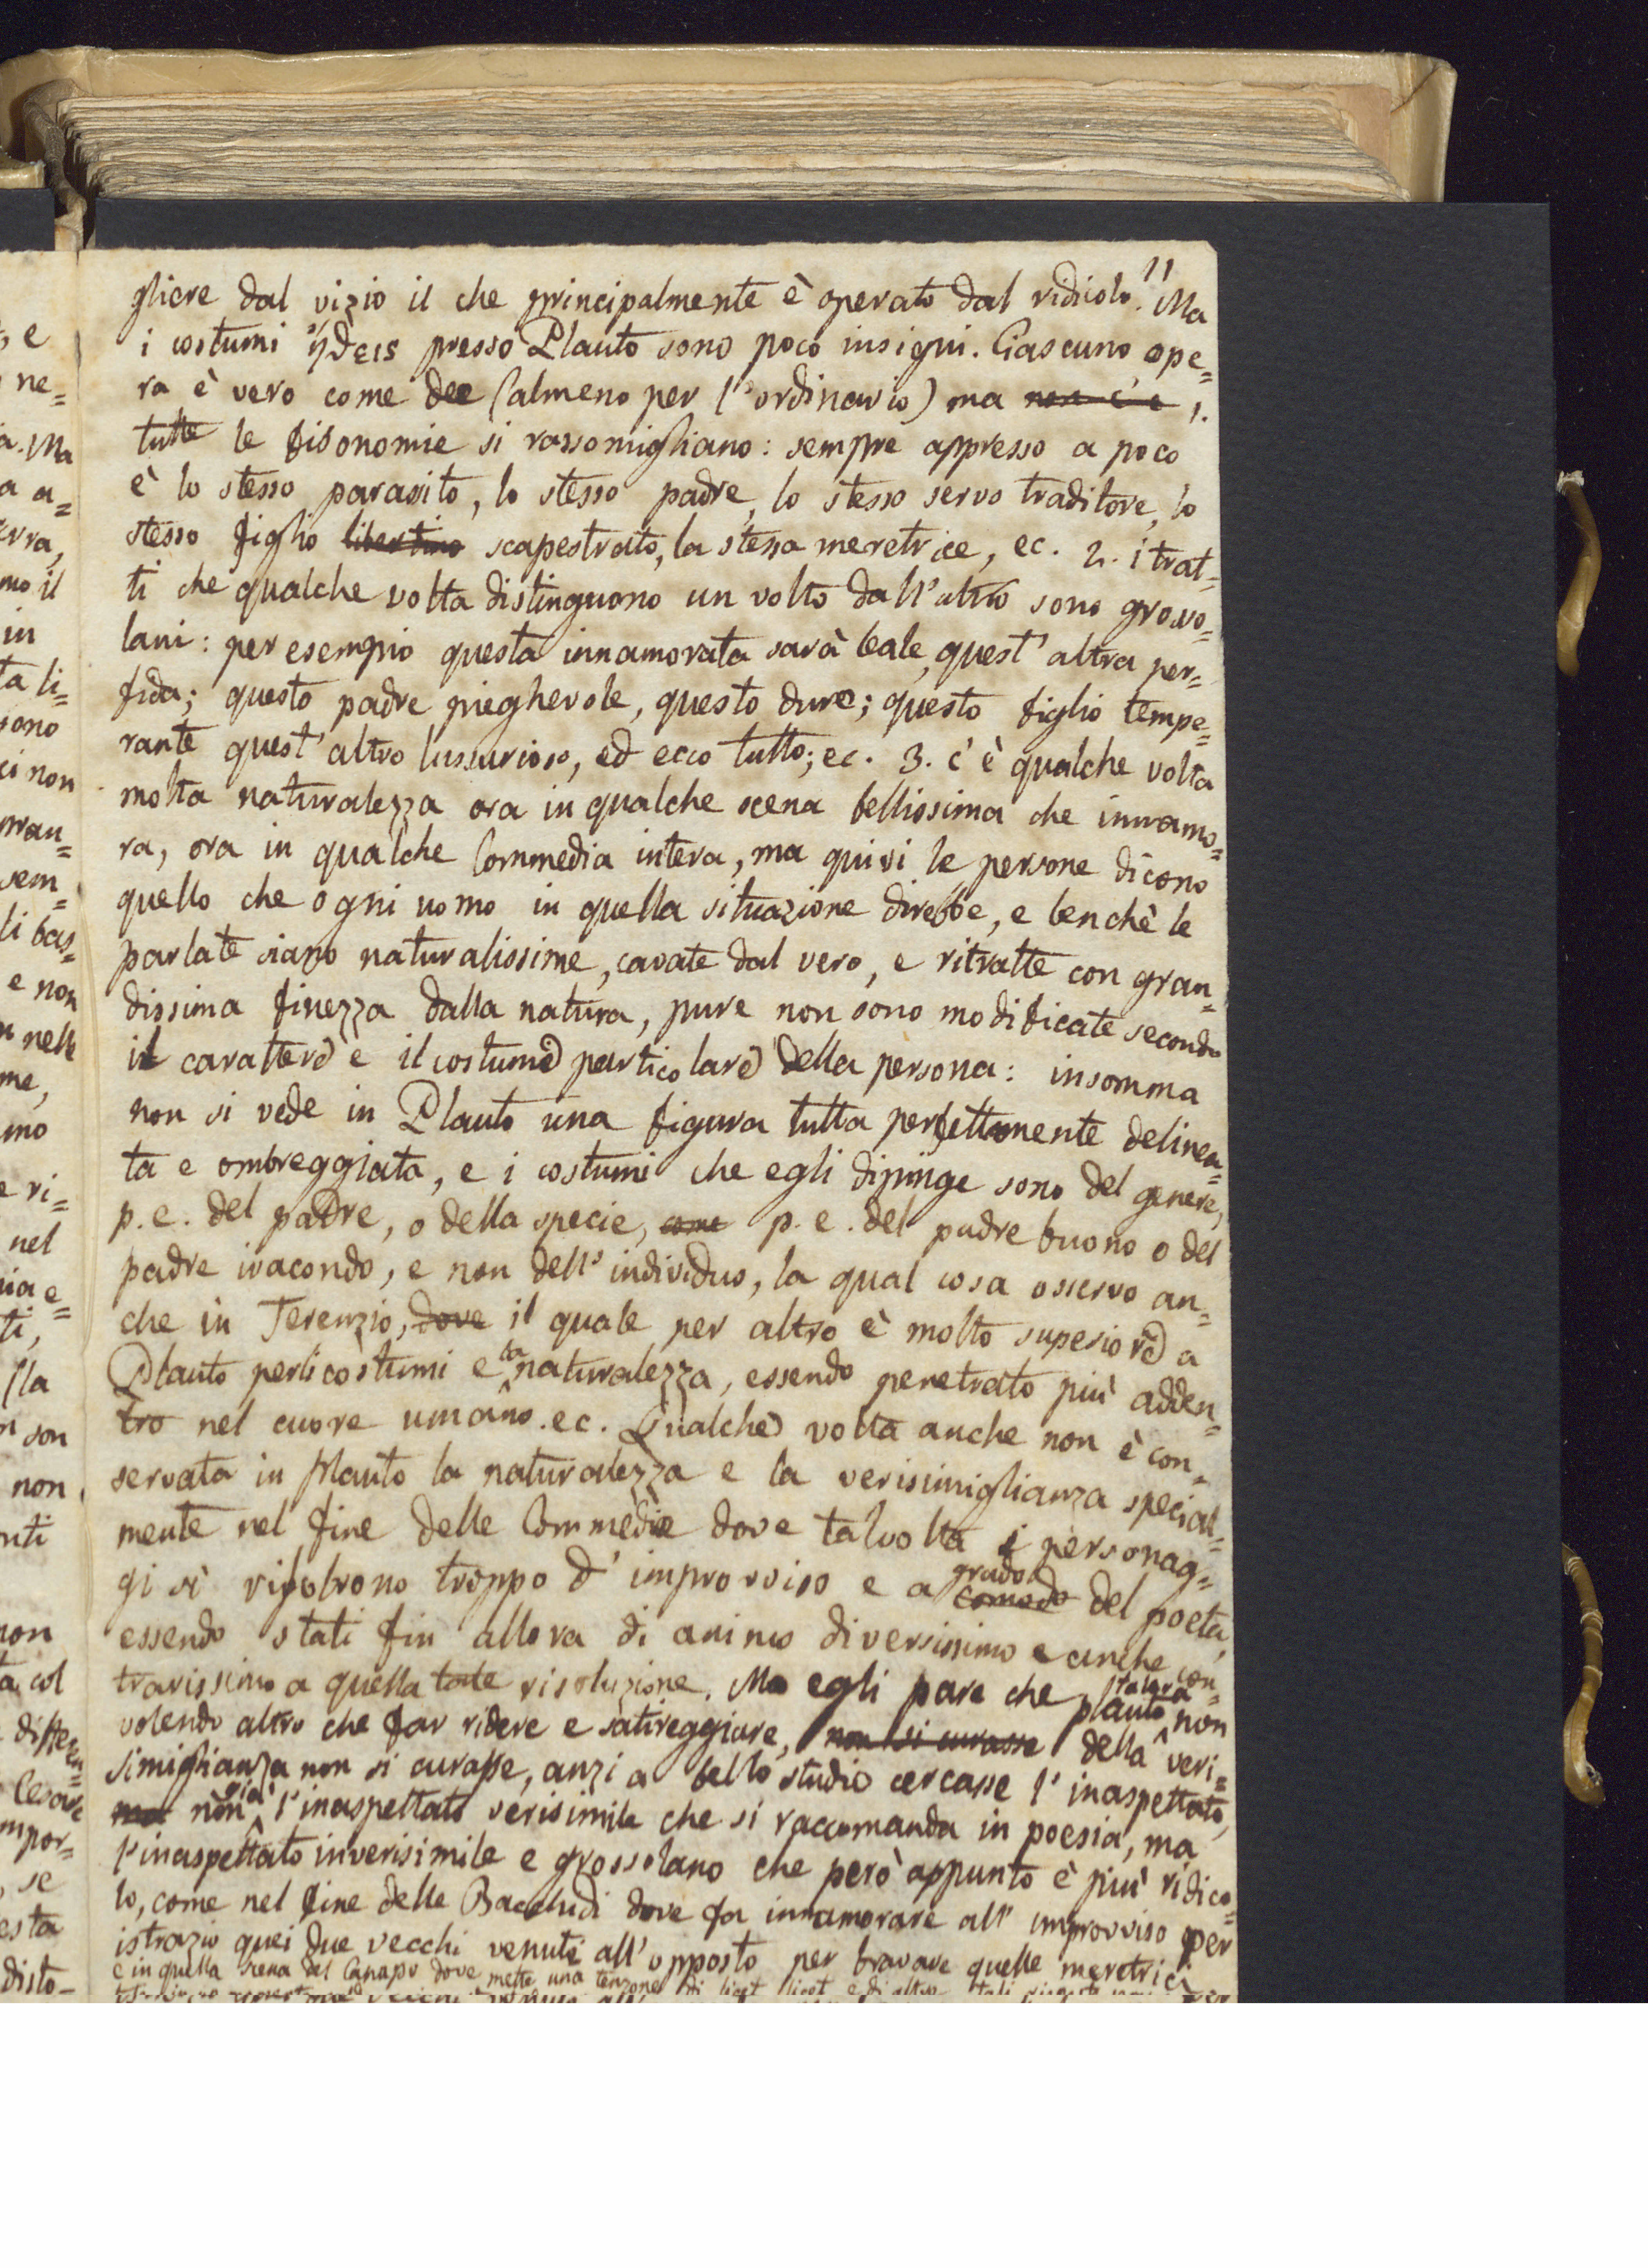 11
gliere dal vizio il che principalmente è operato dal ridicolo. Ma
i costumi ἤθεις presso Plauto sono poco insigni. Ciascuno ope=
ra è vero come dee (almeno per l'ordinario) ma non c'è 1.
tutte le fisonomie si rassomigliano: sempre appresso a poco
è lo stesso parasito, lo stesso padre, lo stesso servo traditore, lo
stesso figlio libertino scapestrato, la stessa meretrice, ec. 2. i trat=
ti che qualche volta distinguono un volto dall'altro sono grosso=
lani: per esempio questa innamorata sarà leale, quest'altra per=
fida; questo padre pieghevole, questo duro; questo figlio tempe=
rante quest'altro lussurioso, ed ecco tutto; ec. 3. c'è qualche volta
molta naturalezza ora in qualche scena bellissima che innamo=
ra, ora in qualche Commedia intera, ma quivi le persone dicono
quello che ogni uomo in quella situazione direbbe, e benchè le
parlate siano naturalissime, cavate dal vero, e ritratte con gran=
dissima finezza dalla natura, pure non sono modificate secondo
il carattere e il costume particolare della persona: insomma
non si vede in Plauto una figura tutta perfettamente delinea=
ta e ombreggiata, e i costumi che egli dipinge sono del genere,
p. e. del padre, o della specie, come p. e. del padre buono o del
padre iracondo, e non dell'individuo, la qual cosa osservo an=
che in Terenzio, dove il quale per altro è molto superiore a
Plauto per li costumi e la naturalezza, essendo penetrato più adden=
tro nel cuore umano. ec. Qualche volta anche non è con=
servata in Plauto la naturalezza e la verisimiglianza special=
mente nel fine delle Commedie dove talvolta i personag=
gi si risolvono troppo d'improvviso e a comodo grado del poeta
essendo stati fin allora di animo diversissimo e anche con=
trarissimo a quella tale risoluzione. Ma egli pare che Plauto talora non
volendo altro che far ridere e satireggiare, non si curasse della veri=
simiglianza non si curasse, anzi a bello studio cercasse l'inaspettato,
ma non già l'inaspettato verisimile che si raccomanda in poesia, ma
l'inaspettato inverisimile e grossolano che però appunto è più ridico=
lo, come nel fine delle Bacchidi dove fa innamorare all'improvviso per
istrazio quei due vecchi venuti all'opposto per bravare quelle meretrici
e in quella scena del Canapo dove mette una tenzone di licet licet e di altre tali